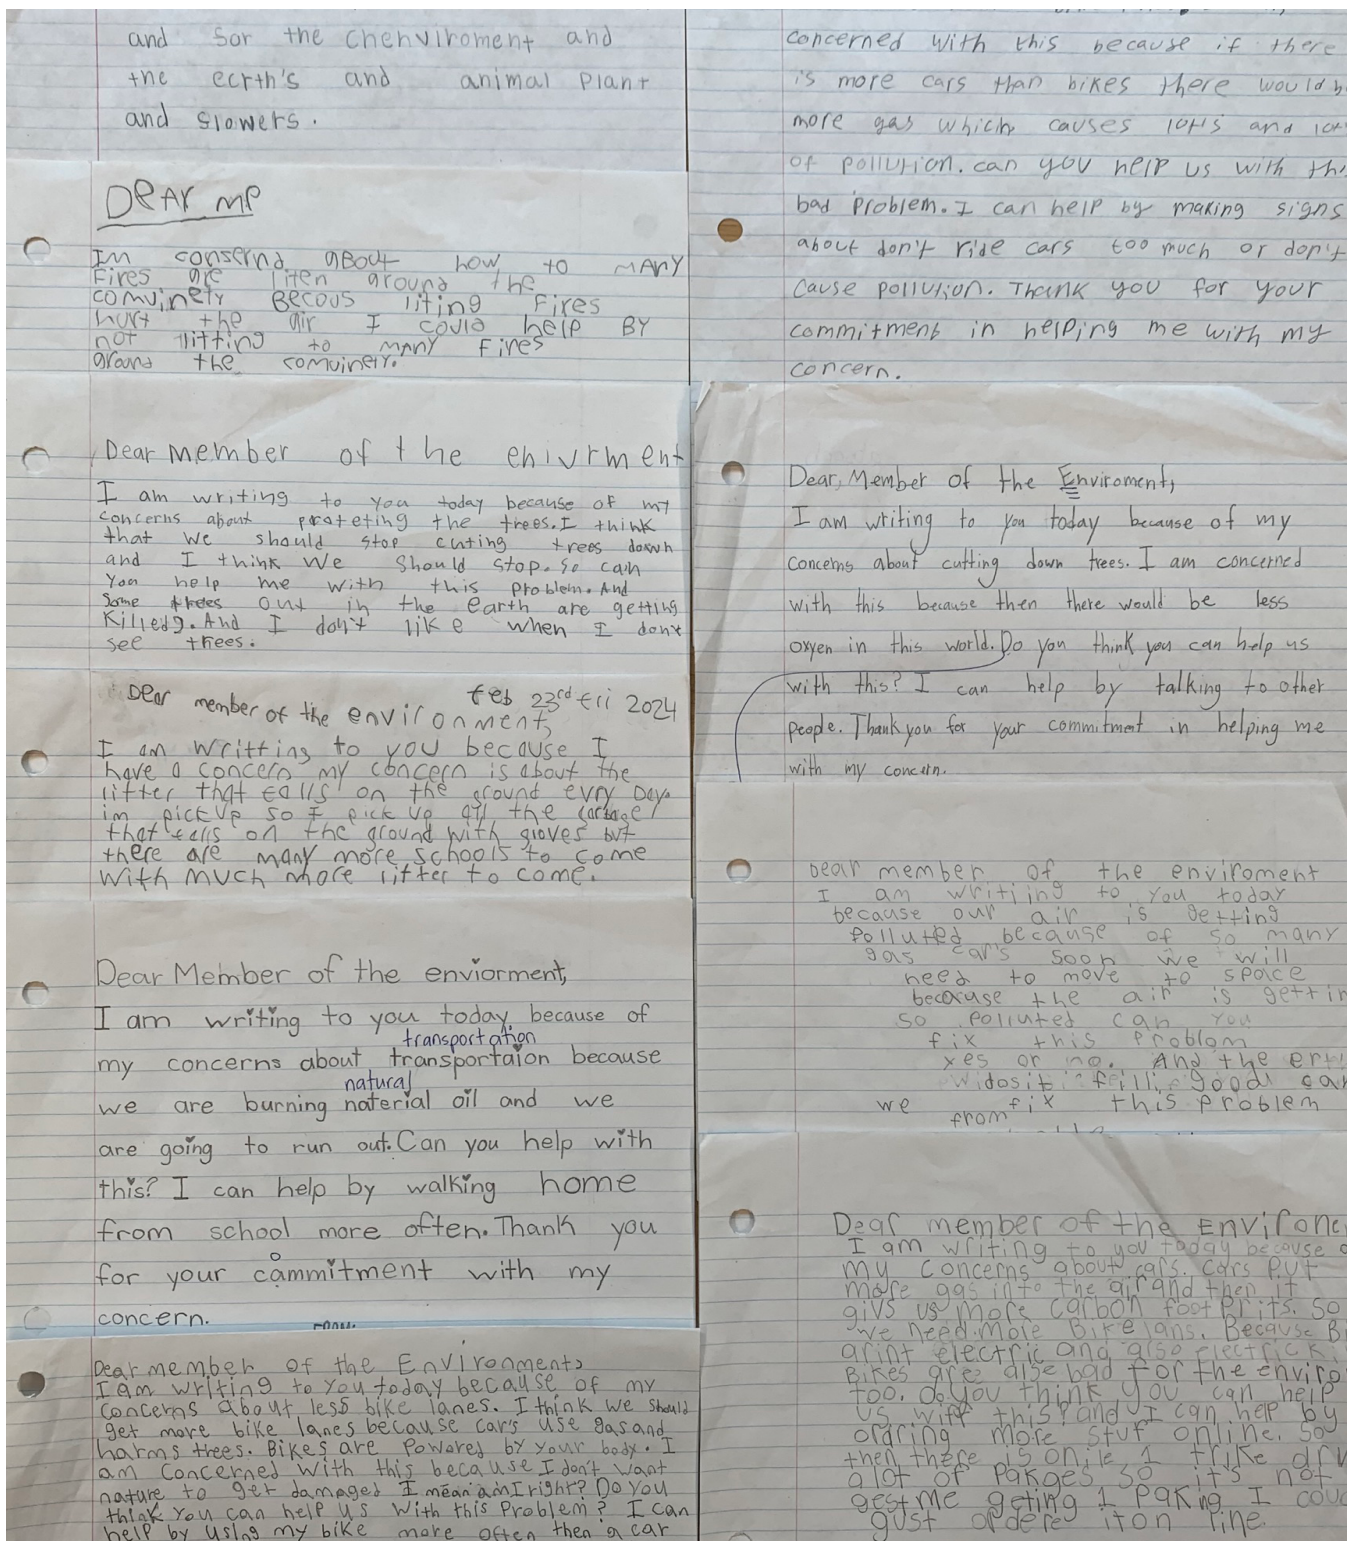 and sor the chenviroment and
the ecrth's and animal plant
and slowers.
DEAr me
Im consernd about how to MANY
Fires are liten around the
comvinety Becous liting Fires
hurt the air I could help BY
not litting to many fires
ground the comvinety.
Dear member of the enivrment
I am writing to you today because of my
concerns about proteting the trees. I think
that we should stop cuting trees down
and I think we should stop. So can
you help me with this problem. And
some trees out in the earth are getting
killedg. And I don't like when I don't
see trees.
Dear member of the environment, feb 23rd fri 2024
I am writting to you because I
have a concern my concern is about the
litter that falls on the ground evry Day.
im pick up so I pick up all the garbage
that falls on the ground with gloves but
there are many more schools to come
with much more litter to come.
Dear Member of the enviorment,
I am writing to you today because of
transportation
my concerns about transportaion because
natural
we are burning naterial oil and we
are going to run out. Can you help with
this? I can help by walking home
from school more often. Thank you
o
for your cammitment with my
concern.
Dear member of the Environment,
I am writing to you today because of my
concerns about less bike lanes. I think we should
get more bike lanes because cars use gas and
harms trees. Bikes are powered by your body. I
am concerned with this because I don't want
nature to get damaged I mean am I right? Do you
think you can help us with this problem? I can
help by using my bike more often then a car
concerned with this because if there
is more cars than bikes there would b
more gas which causes lots and lot
of pollution. can you help us with thi
bad problem. I can help by making signs
about don't ride cars too much or don't
cause pollution. Thank you for your
commitment in helping me with my
concern.
Dear, Member of the Enviroment,
I am writing to you today because of my
concerns about cutting down trees. I am concerned
with this because then there would be less
oxyen in this world. Do you think you can help us
with this? I can help by talking to other
people. Thank you for your commitment in helping me
with my concern.
Dear member of the enviroment
I am writiing to you today
because our air is getting
polluted because of so many
gas car's soon we will
need to move to space
because the air is gettin
so polluted can you
fix this problom
yes or no. And the ert
good can
we fix this problem
from
Dear member of the Environe
I am writing to you today because o
my concerns about cars. Cars put
more gas into the air and then it
givs us more carbon foot prits. So
we need more Bike lans. Because B
arint electric and also electrick
Bikes are alse bad for the enviro
too. do you think you can help
us with this? and I can help by
ordring more stuf online. so
then there is onlie 1 trike driv
alot of Pakges so it's not
gest me geting 1 paking I coud
gust ordere it on line